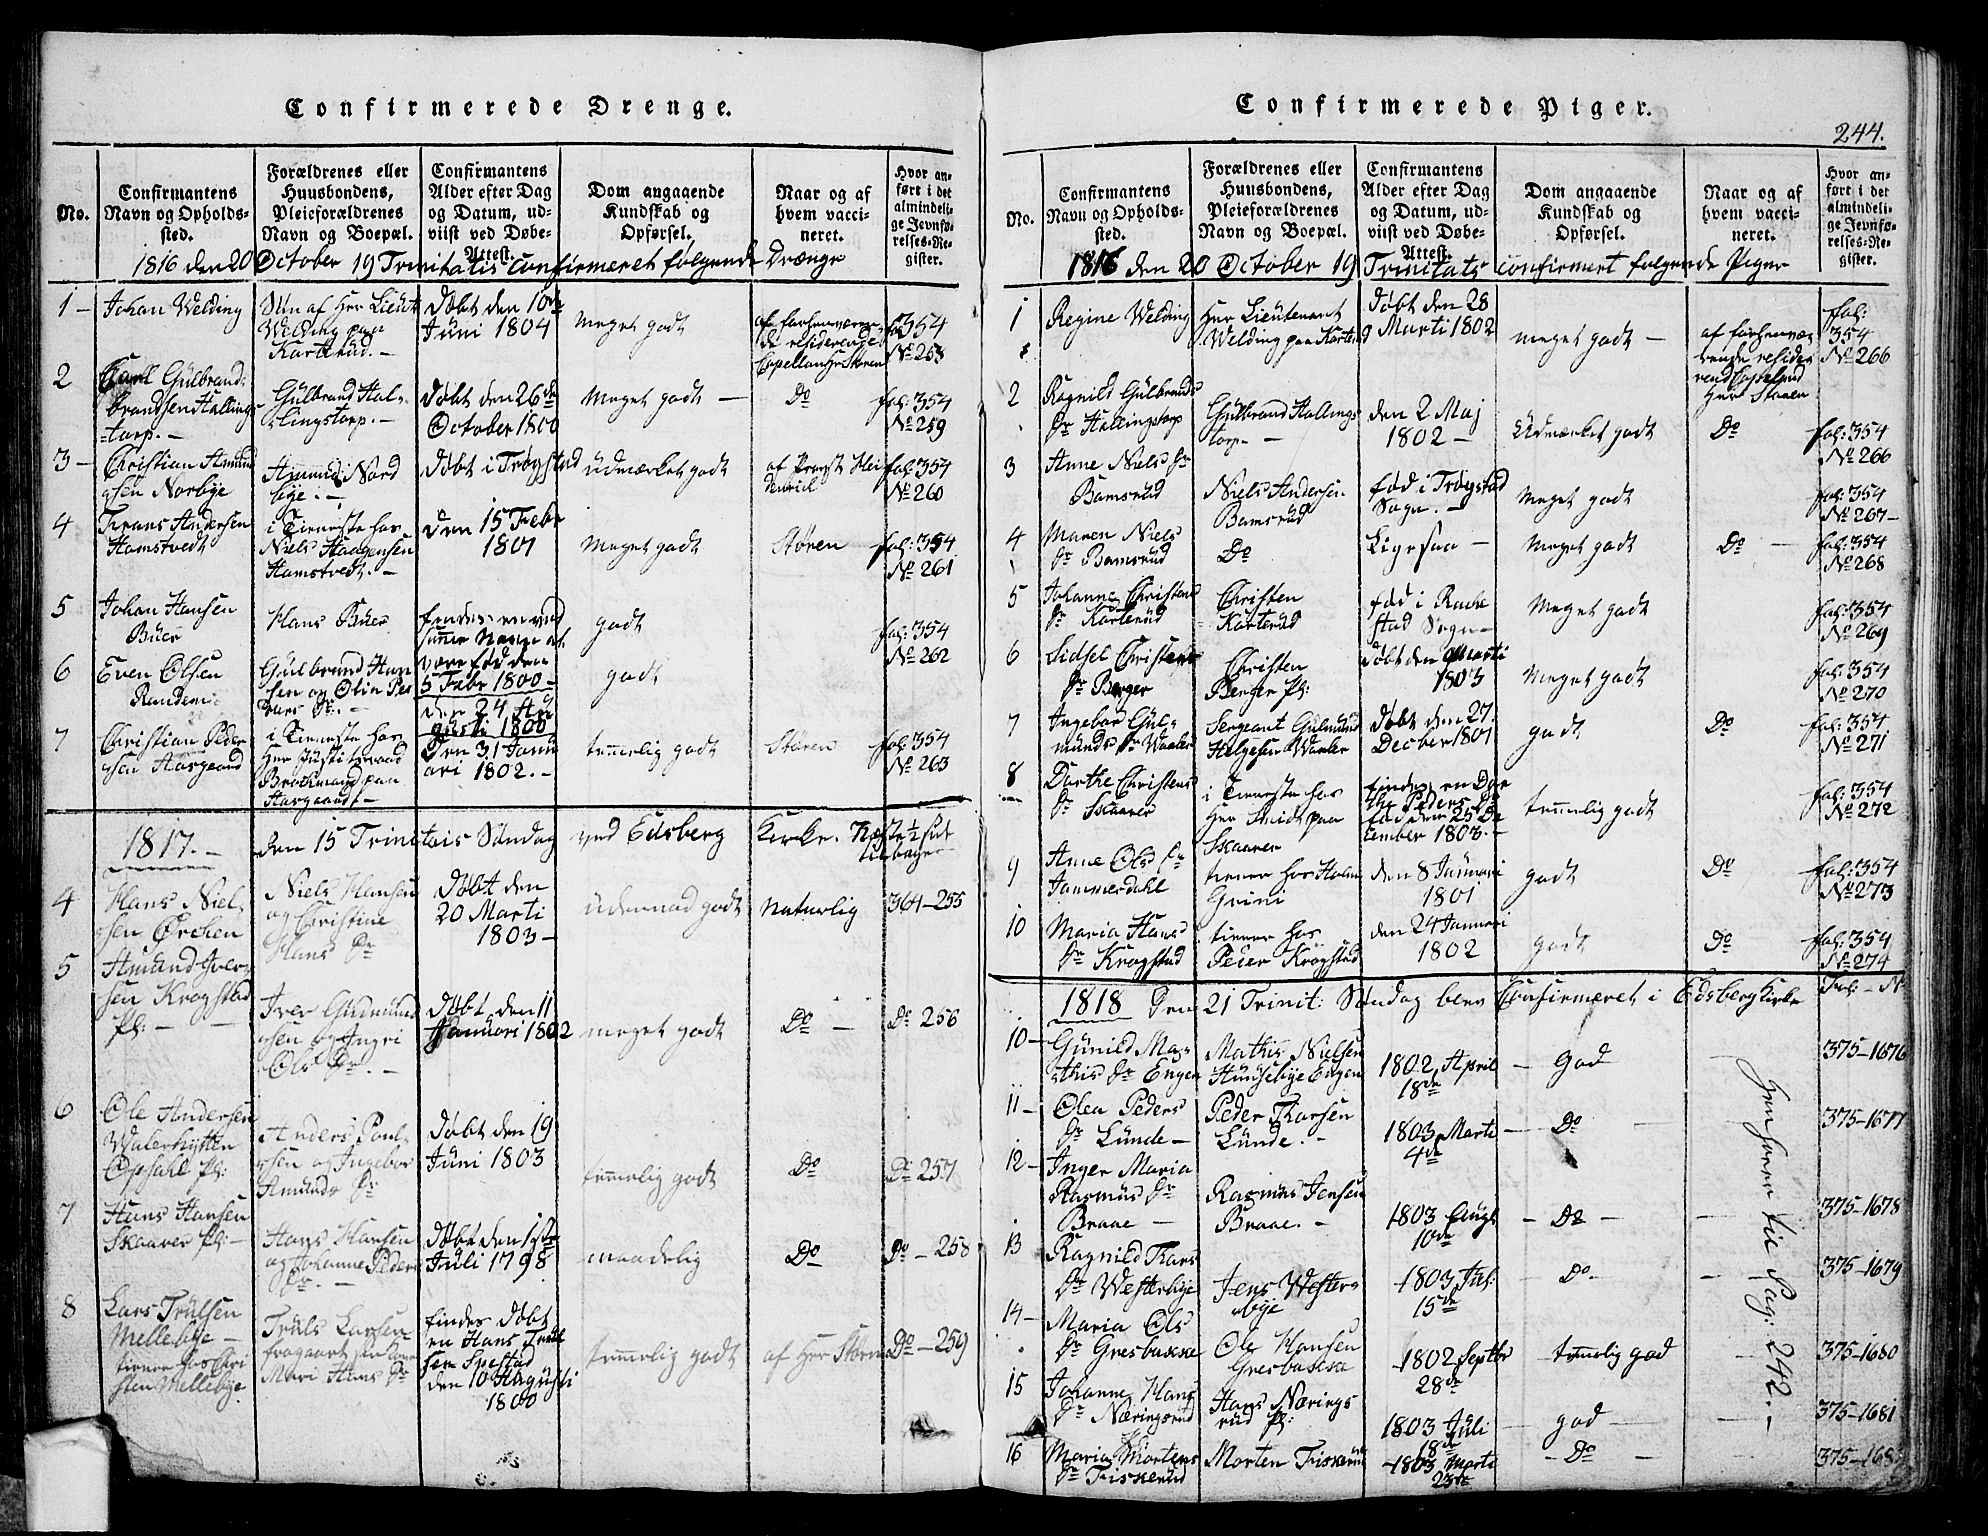 Confirmerede Drenge.
No.
Confirmantens Navn og Opholdssted.
Forældrenes eller Huusbondens, Pleieforældrenes Navn og Boepæl.
Confirmantens Alder efter Dag og Datum, udviist ved Døbe-Attest.
Dom angaaende Kundskab og Opførsel.
Naar og af hvem vaccineret.
Hvor anført i det almindelige Jevnførelses-Register.
1816 den 20 October 19 Trinitatis Confirmeret følgende Drænge
1 - Johan Welding
Søn af Her Lieut Welding paa Karterud. -
Døbt den 10de Juni 1804
Meget godt
Capellan Hr Støren
fol 354 No 253
2 Carl Gulbrandsen Hallingstorp. -
Gulbrand Hallingstorp. -
Døbt den 26de October 1800
Meget godt -
Do
fol: 354 No 259
3 - Christian Amundsen Norbye
Amund Nordbye. -
Døbt i Trøgstad
udmærket godt
af Provst Heidenrich
fol: 354 No 260
4 Frans Andersen Hamstvedt
i Tieneste hos Niels Haagensen Hamstvedt. -
den 15 Febr 1801
Meget godt
Støren
fol: 354 No 261
5 Johan Hansen Büer
Hans Büer
findes en ved samme Navn at være fød den 5 Febr 1800 -
godt
fol: 354 No 262
6 Even Olsen Randem
Gulbrand Hansen og Olia Peders Dr. -
den 24 Augusti 1800
godt
7 Christian Pedersen Aasgaard
i Tieneste hos Her Justitsraad Brochmand paa Aasgaard. -
Den 31 Januari 1802. -
temmerlig godt
Støren
fol: 354 No 263
1817. - den 15 Trinitatis Søndag ved Edsberg Kirke.
4 Hans Nielsen Ørchen
Niels Hansen og Christine Hans Dr
Døbt den 20 Marti 1803 -
udermad godt
Naturlig
364 - 255
5 Amund Iversen Krogstad Pl: -
Iver Gudmundsen og Ingri Ols Dr. -
Døbt den 11 Januari 1802
meget godt
Do -
Do 256
6 Ole Andersen Walerhytten Opsahl pl:
Anders Poulsen og Ingebor Amunds Dr
Døbt den 19 Juni 1803
temmelig godt
Do
Do 257
7 Hans Hansen Skaarer Pl: -
Hans Hansen og Johanne Peders Dr. -
Døbt den 1ste Juli 1798
maadelig
Do
Do - 258
8 Lars Trulsen Mellebye - tiener hos Christen Mellebye
Truls Larsen
Mari Hans Dr
findes Døbt en Hans Truelsen Spestad den 10 Augusti 1800
temmelig godt
af Her Støren
Do - 259
Confirmerede Piger.
244.
No.
Confirmantens Navn og Opholdssted.
Forældrenes eller Huusbondens, Pleieforældrenes Navn og Boepæl.
Confirmantens Alder efter Dag og Datum, udviist ved Døbe-Attest.
Dom angaaende Kundskab og Opførsel.
Naar og af hvem vaccineret.
Hvor anført i det almindelige Jevnførelses-Register.
1816 den 20 October 19 Trinitats confirmert følgende Piger
1 Regine Welding
Her Lieutenant Welding paa Karterud
Døbt den 28 Marti 1802
meget godt -
af forhenværende residerend Capelland Herr Støren
fol: 354 No 266
2 Ragnild Gulbrands Dr Hallingstorp
Gulbrand Hallingstorp -
den 2 Maj 1802 -
Udmærket godt
Do
fol: 354 No 266
3 Anne Niels Dr Bamsrud
Niels Andersen Bamsrud
fød i Trøgstad Sogn. -
Meget godt
fol: 354 No 267 -
4 Maren Niels Dr Bamsrud
Do
Ligesaa -
Meget godt
Do -
fol: 354 No 268
5 Johanne Christens Dr Karterud
Christen Karterud
fød i Rachestad Sogn -
Meget godt
fol: 354 No 269
6 Sidsel Christens Dr Berger
Christen Berger pl:
Døbt den Marti 1803
Meget godt
fol: 354 No 270
7 Ingebor Gulmunds Dr Waaler
Sergeant Gulmund Helgesen Waaler
Døbt den 27 Decber 1801
godt
Do
fol: 354 No 271
8 Dorthe Christens Dr Skaarer
i Tieneste hos Her Smidt paa Skaarer
findes en Dorthe Peders Dr fød den 25 December 1803. -
temmelig godt
fol: 354 No 272
9 Anne Ols Dr Jammerdahl
tiener hos Holm Grini
den 8 Januari 1801
godt
Do
fol: 354 No 273
10 Maria Hans Dr Krogstad
tiener hos Peder Krogstad
den 24 Januari 1802
godt
Do
fol: 354 No 274
1818 Den 21 Trinit: Søndag blev Confirmeret i Edsberg Kirke
Fol - N
10 - Gunild Mathis Dr Engen
Mathis Nielsen Huusebye Engen
1802, April 18de
- God
375 - 1676
11 - Olea Peders Dr Lunde -
Peder Thorsen Lunde. -
1803 Marti 4de
- Do -
375 - 1677
12 - Inger Maria Rasmus Dr Braae -
Rasmus Jensen Braae. -
1803 Augt 10de
- Do -
375 - 1678
13 Ragnild Thors Dr Westerbye
Jens Westerbye
1803 Jul: 15de
- Do. -
375 - 1679
14 - Maria Ols Dr Gresbakke
Ole Hansen Gresbakke
1802 Septbr 28de
- temmelig god
375 - 1680
15 Johanne Hans Dr Næringsrud
Hans Næringsrud pl:
1803 Juli 18de
- god -
375 - 1681
16 Maria Mortens Dr Friskerud
Morten Friskerud
1803 Marti 23de
- Do -
375 - 168
Henhører til Pag: 242. -